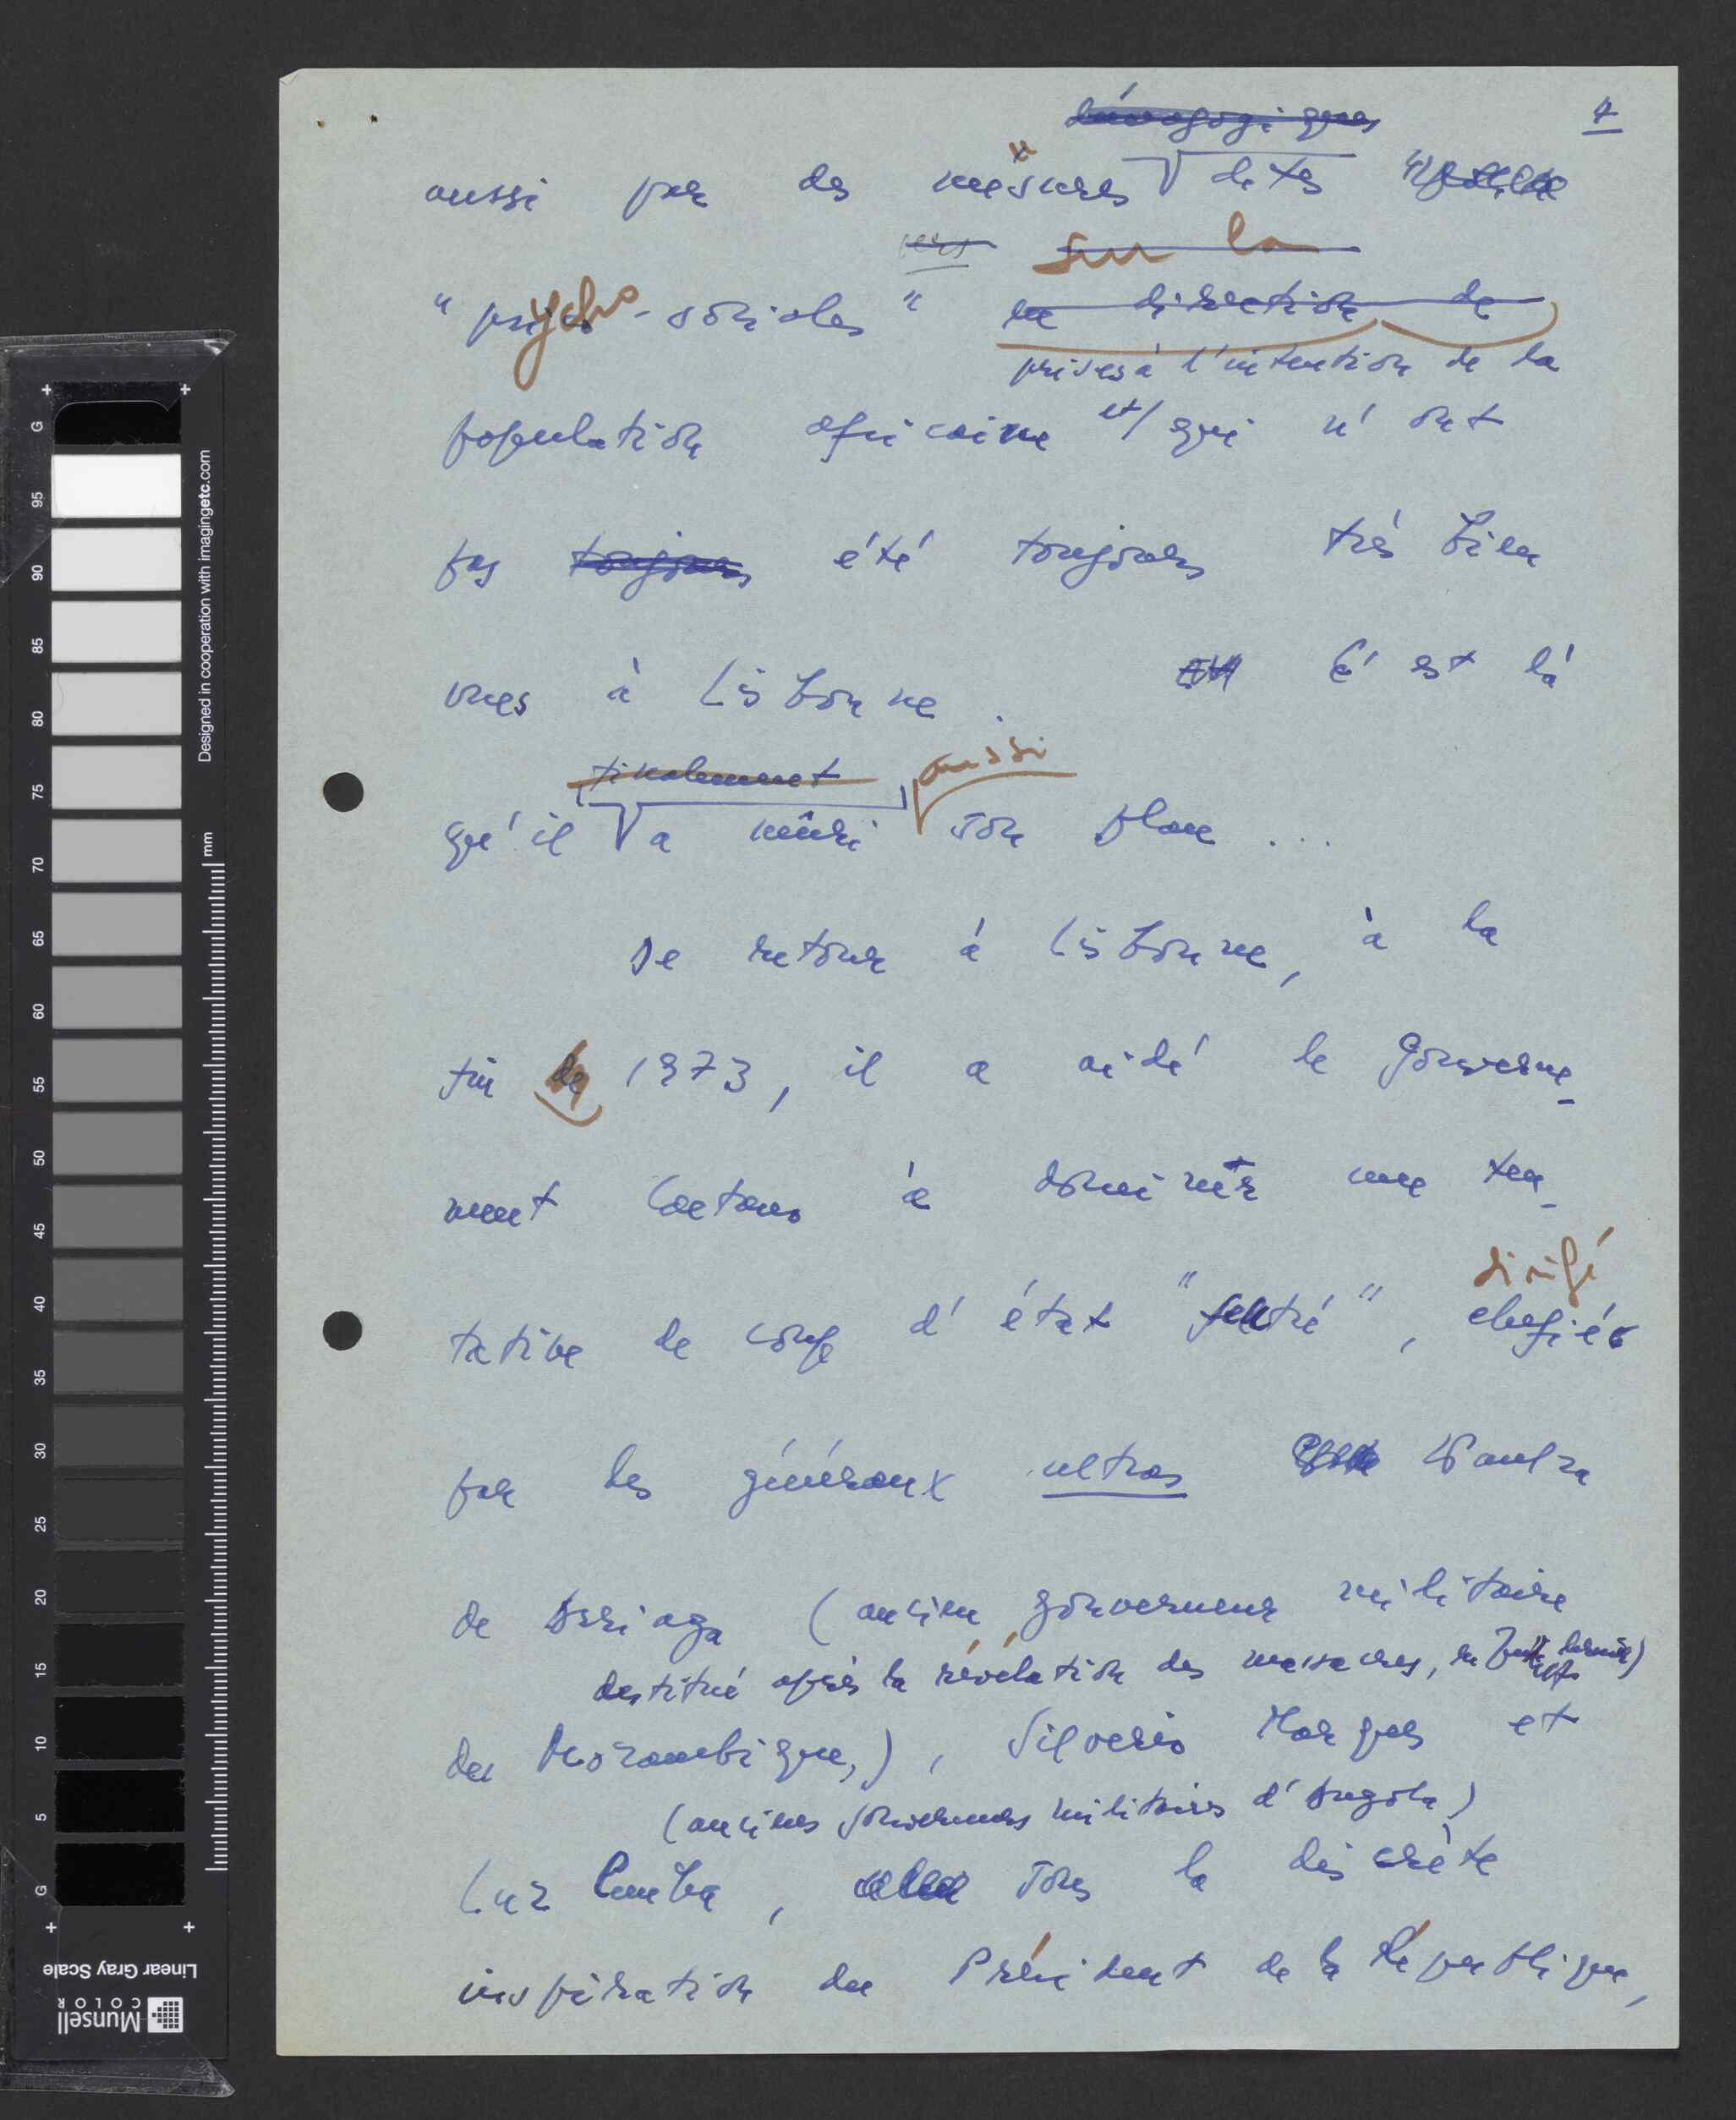 démagogiques
4
aussi par des mesures dites
vers sur la
"psycho-sociales" en direction de
prises à l'intention de la
population africaine et/ qui n'ont
pas toujours été toujours très bien
vues à Lisbonne. C'est là
finalement aussi
qu'il a mûri son plan ...
De retour à Lisbonne, à la
fin de 1973, il a aidé le gouverne-
ment Caetano à dominer une ten-
dirigé
tative de coup d'état "feutré", chefiée
par les généraux ultras Kaulza
de Arriaga (ancien gouverneur militaire
destitué après la révélation des massacres, en dernier)
du Mozambique,), Silverio Marques et
(anciens gouverneurs militaires d'Angola)
Luz Cunha, sous la discrète
inspiration du Président de la République,
Designed in cooperation with imagingetc.com
mm
G 95 90 85 80 75 70 65 60 55 50 45 40 35 30 25 20 15 10 5 G
Linear Gray Scale
Munsell
COLOR